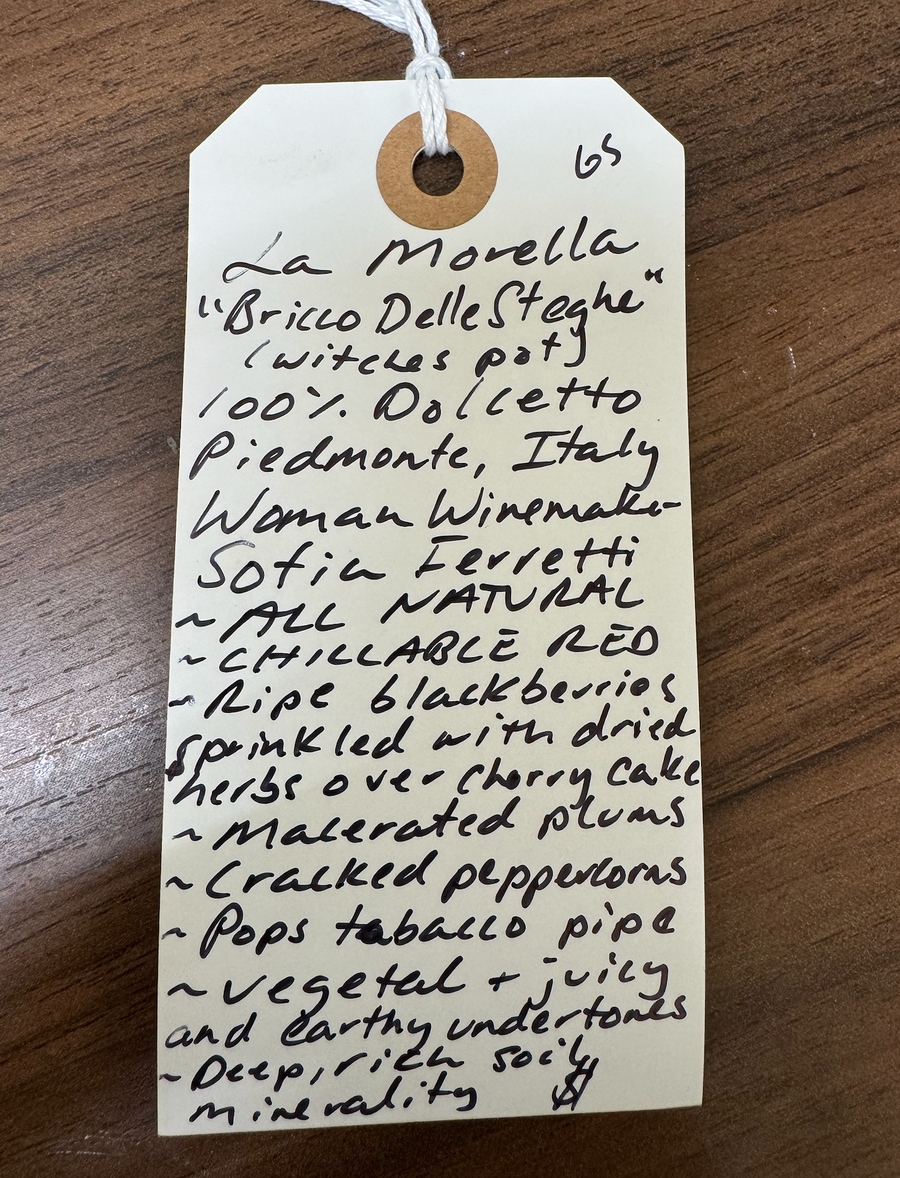 65
La Morella
"Bricco Delle Steghe"
(witches pot)
100% Dolcetto
Piedmonte, Italy
Woman Winemaker
Sofia Ferretti
~ ALL NATURAL
~ CHILLABLE RED
~ Ripe blackberries
sprinkled with dried
herbs over cherry cake
~ Macerated plums
~ Cracked peppercorns
~ Pops tobacco pipe
~ vegetal + juicy
and earthy undertones
~ Deep, rich soily
minerality $